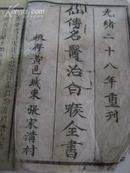 光緒二十八年重刊
仙傳名醫治白喉全書
板存黃邑城東張家溝村